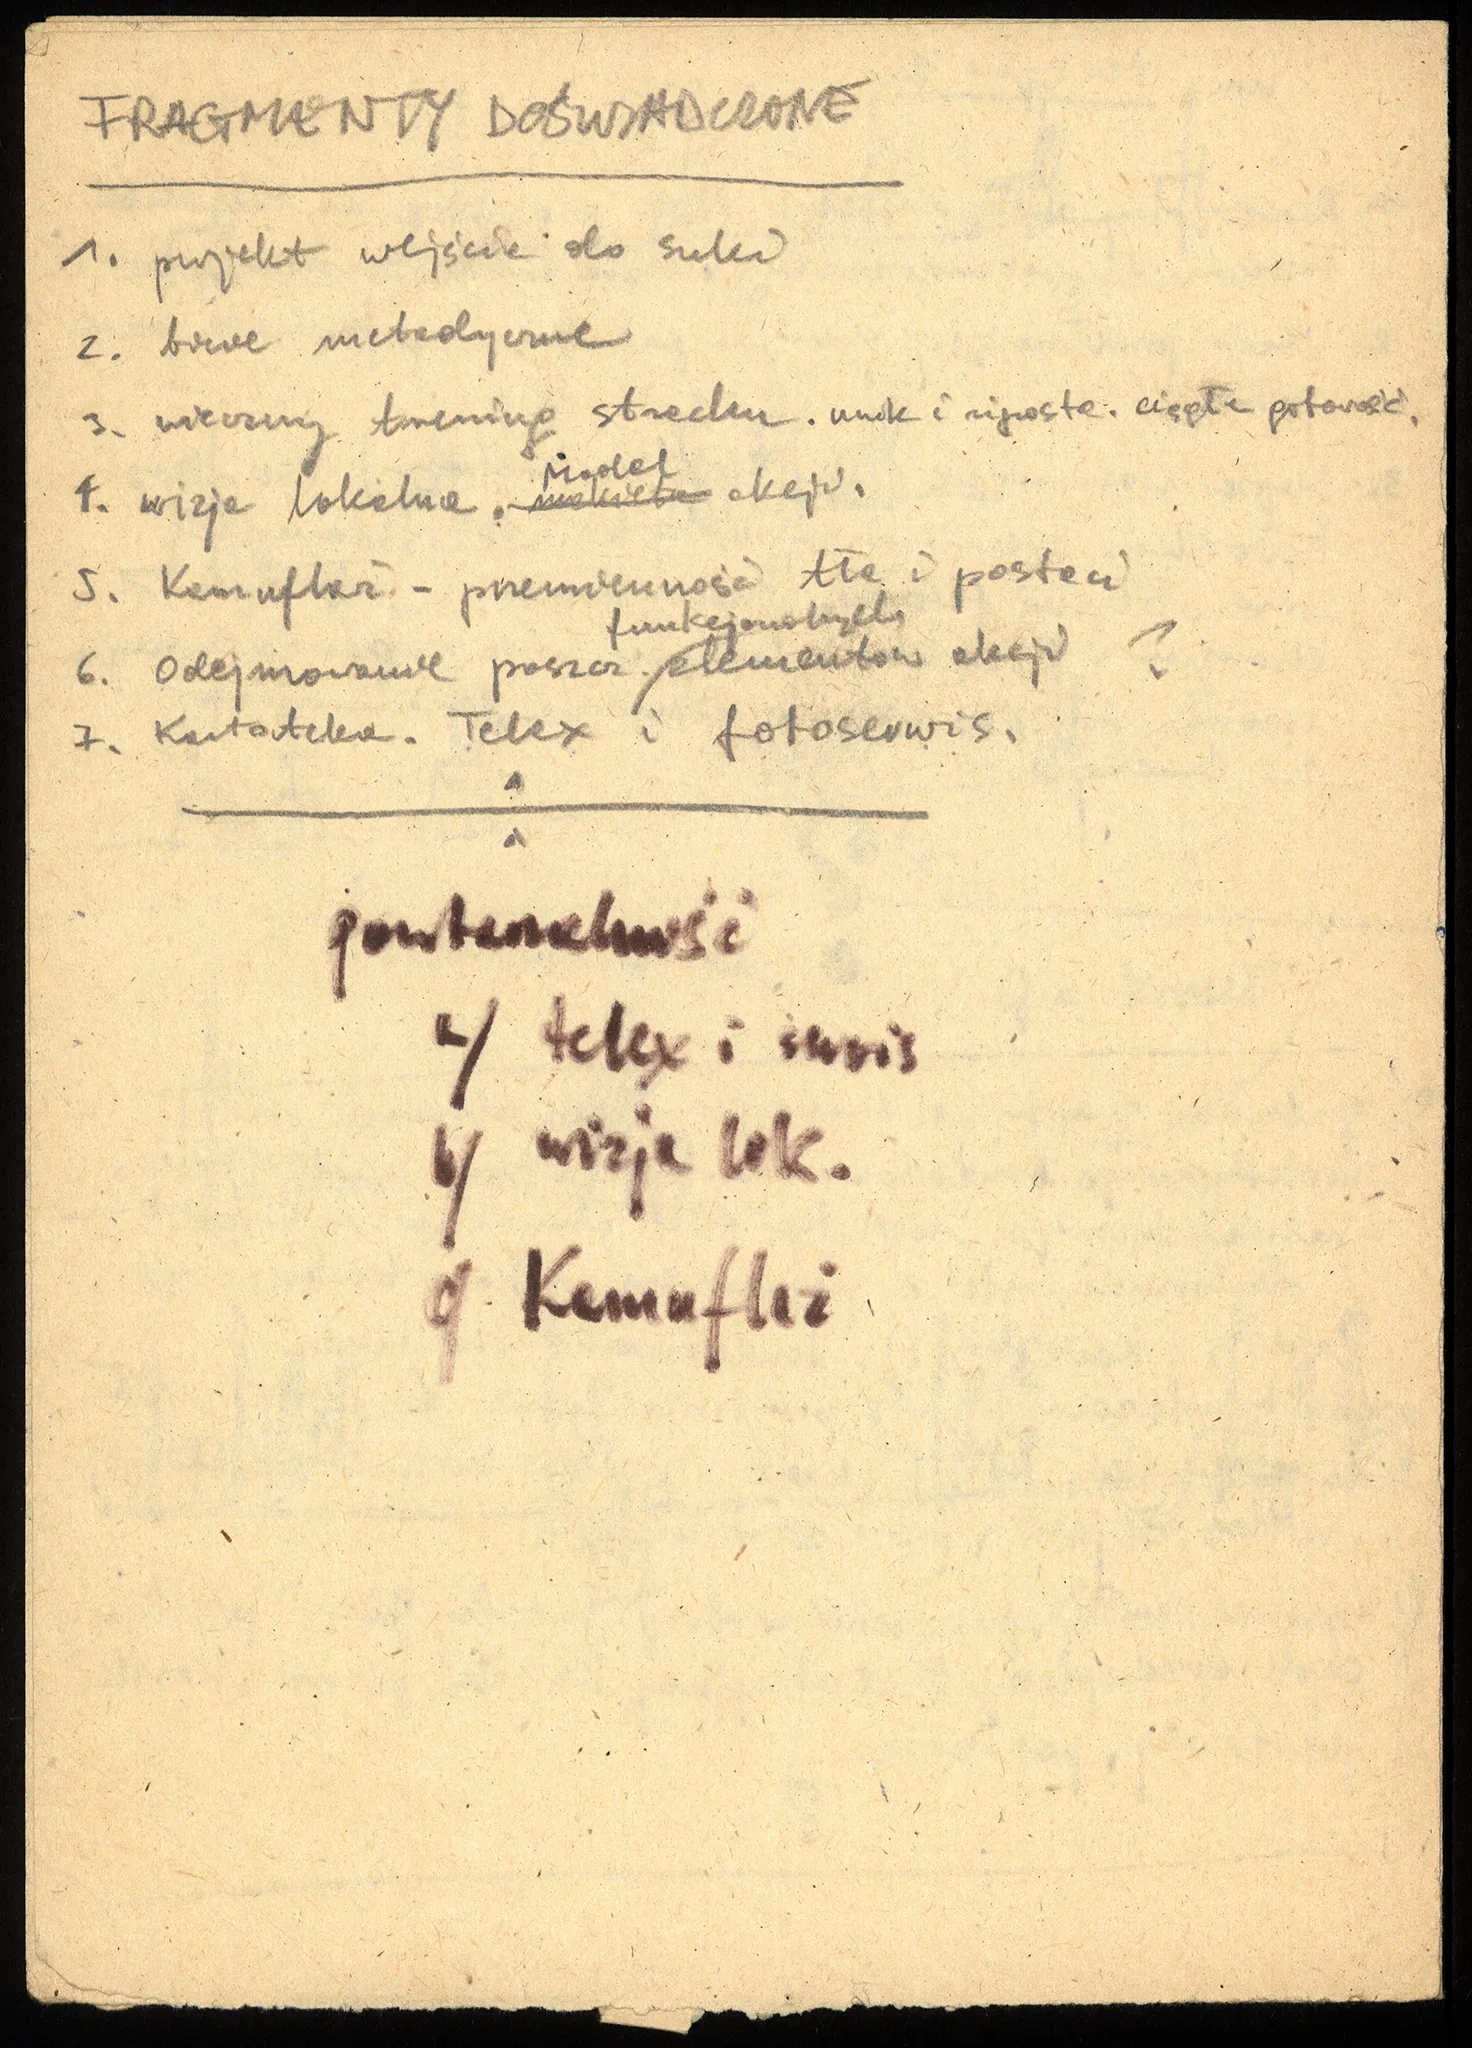 FRAGMENTY DOŚWIADCZONE
1. projekt wejście do suki
2. biuro metodyczne
3. wieczny trening strachu. unik i riposta. ciągła gotowość.
model
4. wizja lokalna. makieta akcji.
5. Kamuflaż - przemienność tła i postaci
funkcjonalnych
6. Odejmowanie poszcz. elementów akcji ?
7. Kartoteka. Telex i fotoserwis.
a/ telex i serwis
b/ wizja lok.
c/ Kamuflaż